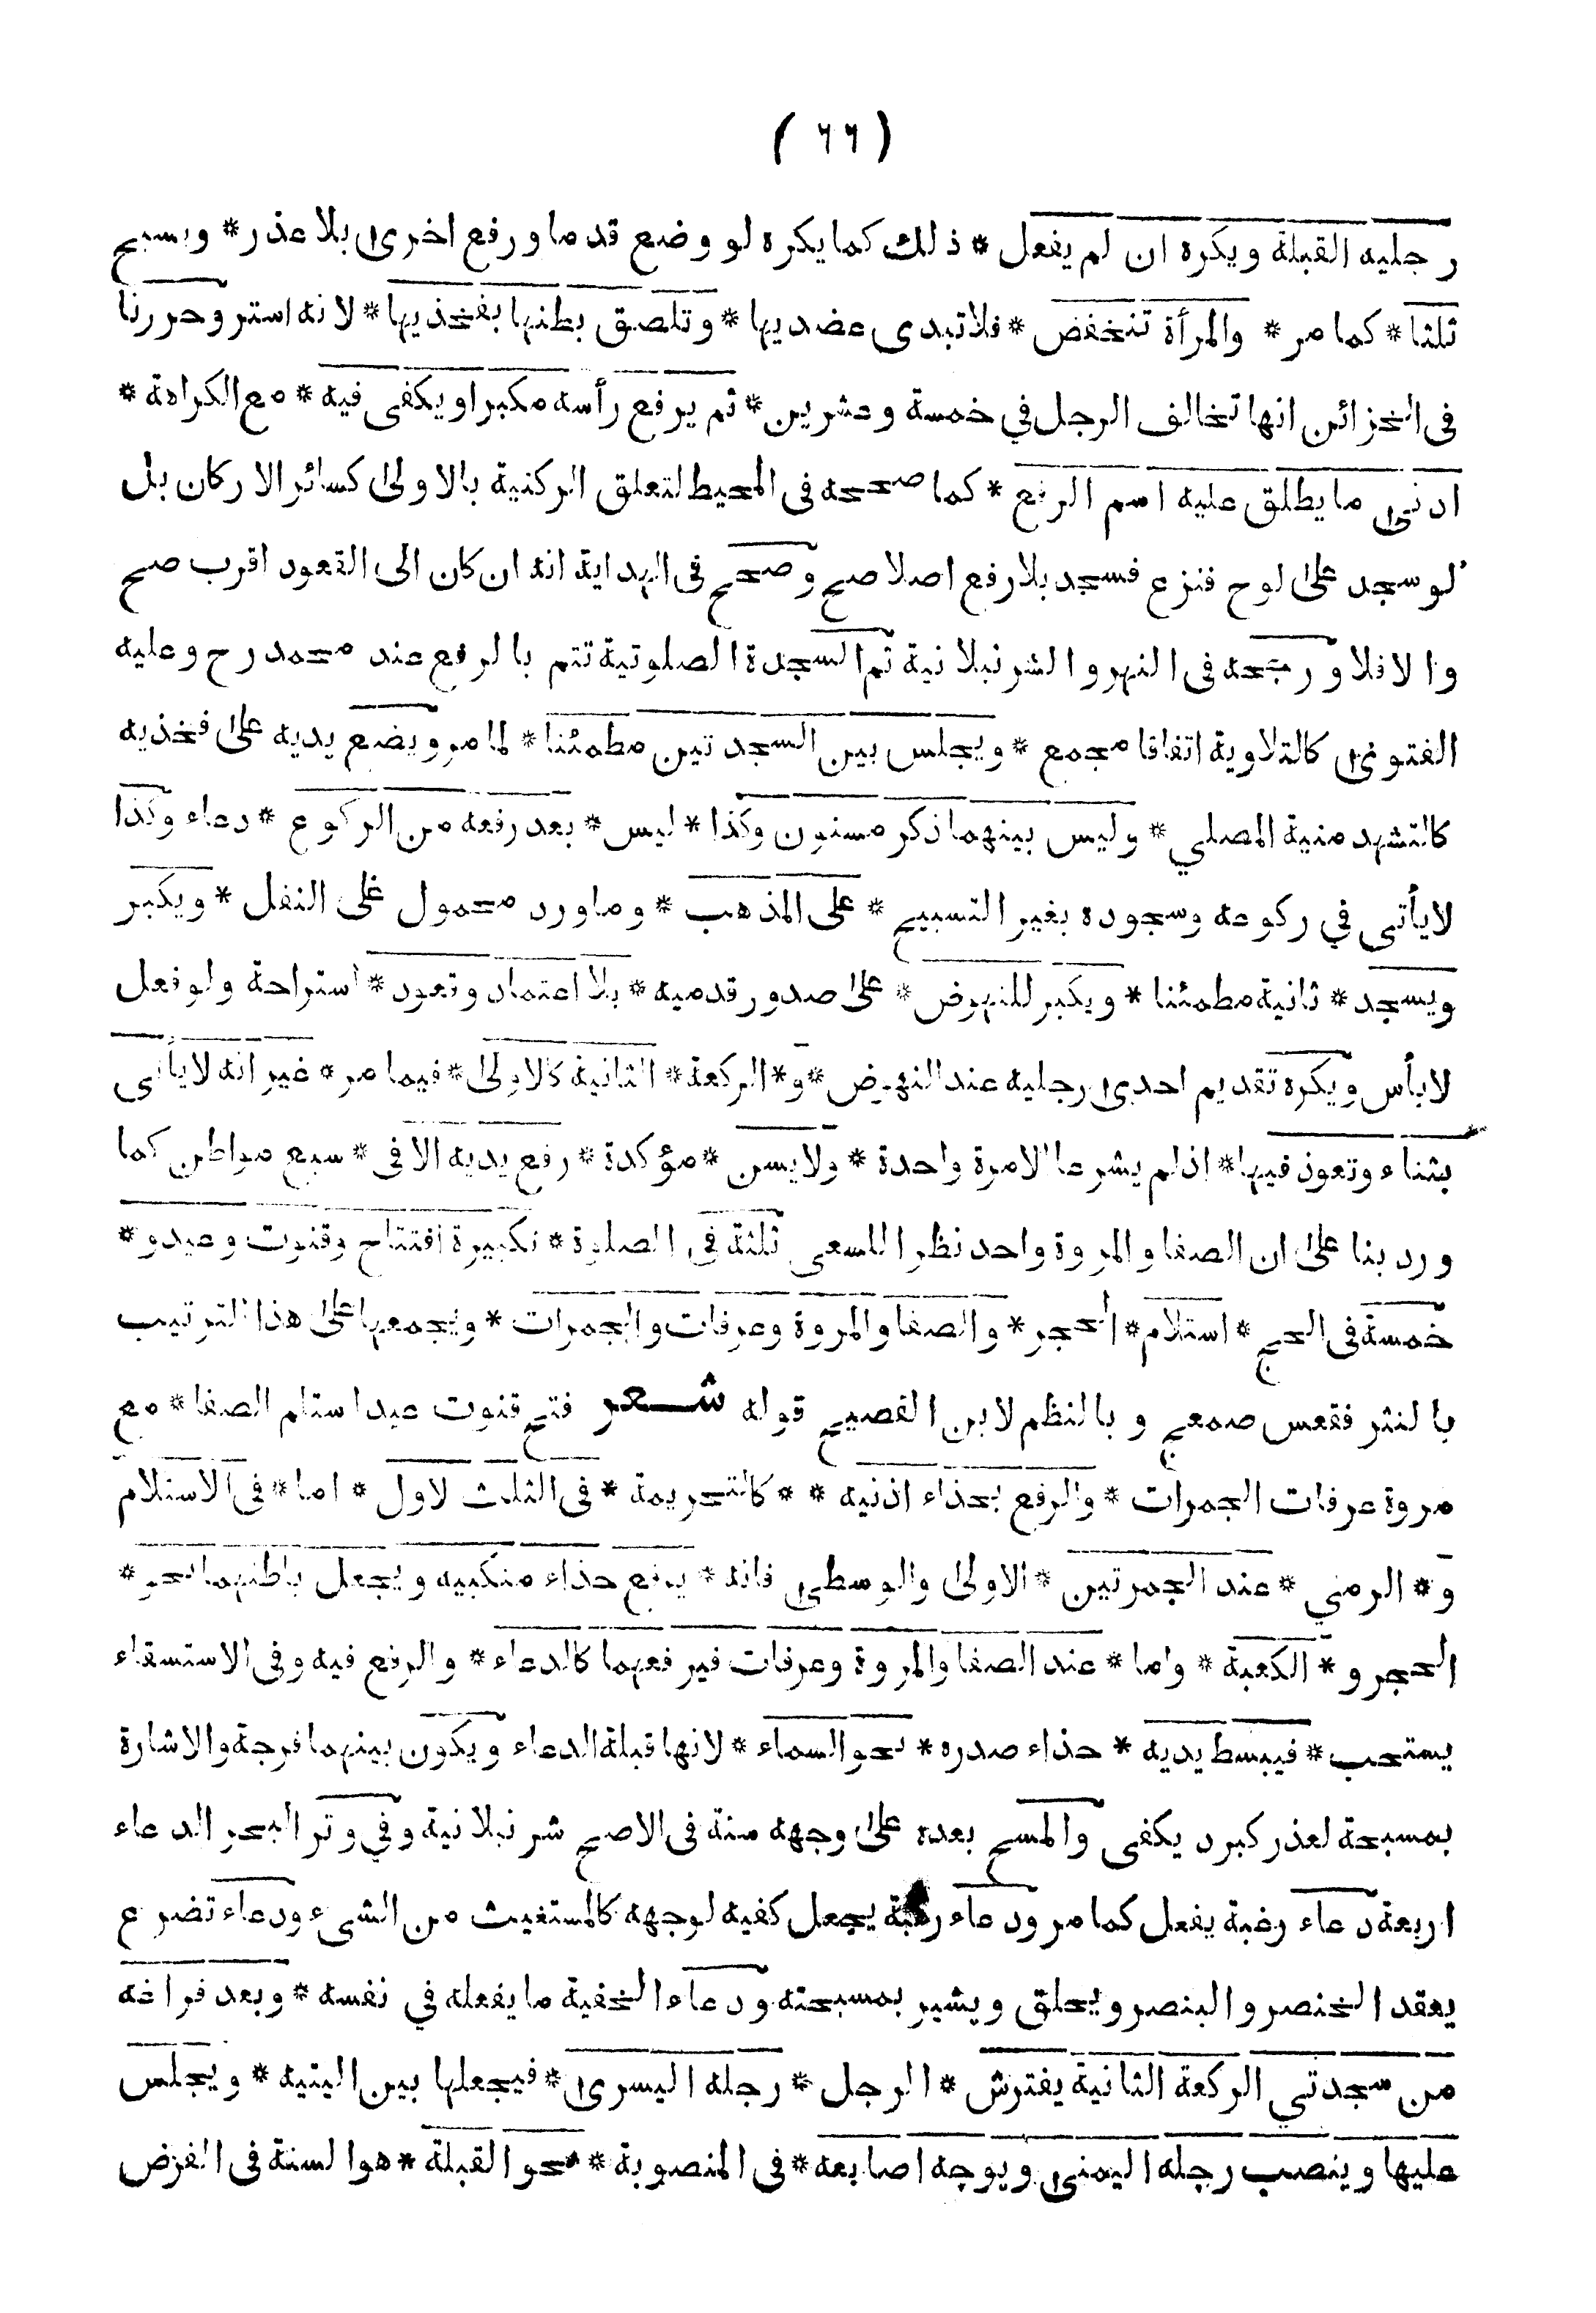 ( ٦٦ )
رجليه القبلة ويكره ان لم يفعل * ذلك كما يكره لو وضع قدما ورفع اخرى بلا عذر * ويسبح
ثلثا * كما مر * والمرأة تنخفض * فلا تبدى عضديها * وتلصق بطنها بفخذيها * لانه استر وحررنا
فى الخزائن انها تخالف الرجل في خمسة وعشرين * ثم يرفع رأسه مكبرا ويكفى فيه * مع الكراهة *
ادنى ما يطلق عليه اسم الرفع * كما صححه فى المحيط لتعلق الركنية بالاولى كسائر الاركان بل
لو سجد على لوح فنزع فسجد بلا رفع اصلا صح وصحح فى الهداية انه ان كان الى القعود اقرب صح
والا فلا ورجحه فى النهر والشرنبلانية ثم السجدة الصلوتية تتم بالرفع عند محمد رح وعليه
الفتوى كالتلاوية اتفاقا مجمع * ويجلس بين السجدتين مطمئنا * لما مر ويضع يديه على فخذيه
كالتشهد منية المصلي * وليس بينهما ذكر مسنون وكذا * ليس * بعد رفعه من الركوع * دعاء وكذا
لا يأتى في ركوعه وسجوده بغير التسبيح * على المذهب * وما ورد محمول على النفل * ويكبر
ويسجد * ثانية مطمئنا * ويكبر للنهوض * على صدور قدميه * بلا اعتماد وقعود * استراحة ولو فعل
لا بأس ويكره تقديم احدى رجليه عند النهوض * و * الركعة * الثانية كالاولى * فيما مر * غير انه لا يأتى
بثناء وتعوذ فيها * اذ لم يشرعا الا مرة واحدة * ولا يسن * مؤكدة * رفع يديه الا فى * سبع مواطن كما
ورد بنا على ان الصفا والمروة واحد نظرا للسعى ثلثة فى الصلوة * تكبيرة افتتاح وقنوت وعيد و *
خمسة فى الحج * استلام * الحجر * والصفا والمروة وعرفات والجمرات * ويجمعها على هذا الترتيب
بالنثر فقعس صمعج وبالنظم لابن الفصيح قوله شعر فتح قنوت عيد استلم الصفا * مع
مروة عرفات الجمرات * والرفع بحذاء اذنيه * * كالتحريمة * فى الثلث لاول * اما * فى الاستلام
و * الرمي * عند الجمرتين * الاولى والوسطى فانه * يرفع حذاء منكبيه ويجعل باطنهما نحو *
الحجر و * الكعبة * واما * عند الصفا والمروة وعرفات فيرفعهما كالدعاء * والرفع فيه وفى الاستسقاء
يستحب * فيبسط يديه * حذاء صدره * نحو السماء * لانها قبلة الدعاء ويكون بينهما فرجة والاشارة
بمسبحة لعذر كبرد يكفى والمسح بعده على وجهه سنة فى الاصح شرنبلانية وفي وتر البحر الدعاء
اربعة دعاء رغبة يفعل كما مر ودعاء رهبة يجعل كفيه لوجهه كالمستغيث من الشىء ودعاء تضرع
يعقد الخنصر والبنصر ويحلق ويشير بمسبحته ودعاء الخفية ما يفعله في نفسه * وبعد فراغه
من سجدتي الركعة الثانية يفترش * الرجل * رجله اليسرى * فيجعلها بين اليتيه * ويجلس
عليها وينصب رجله اليمنى ويوجه اصابعه * فى المنصوبة * نحو القبلة * هو السنة فى الفرض